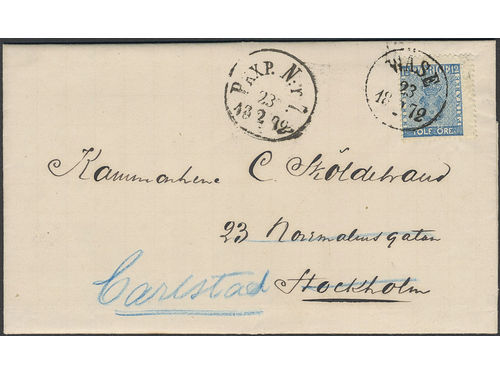 PKXP. Nr 7
23
18 2 72
WASE
23
18 2 72
12 12
TOLF ÖRE.
C. Sköldebrand
23 Norrmalmsgatan
Carlstad Stockholm